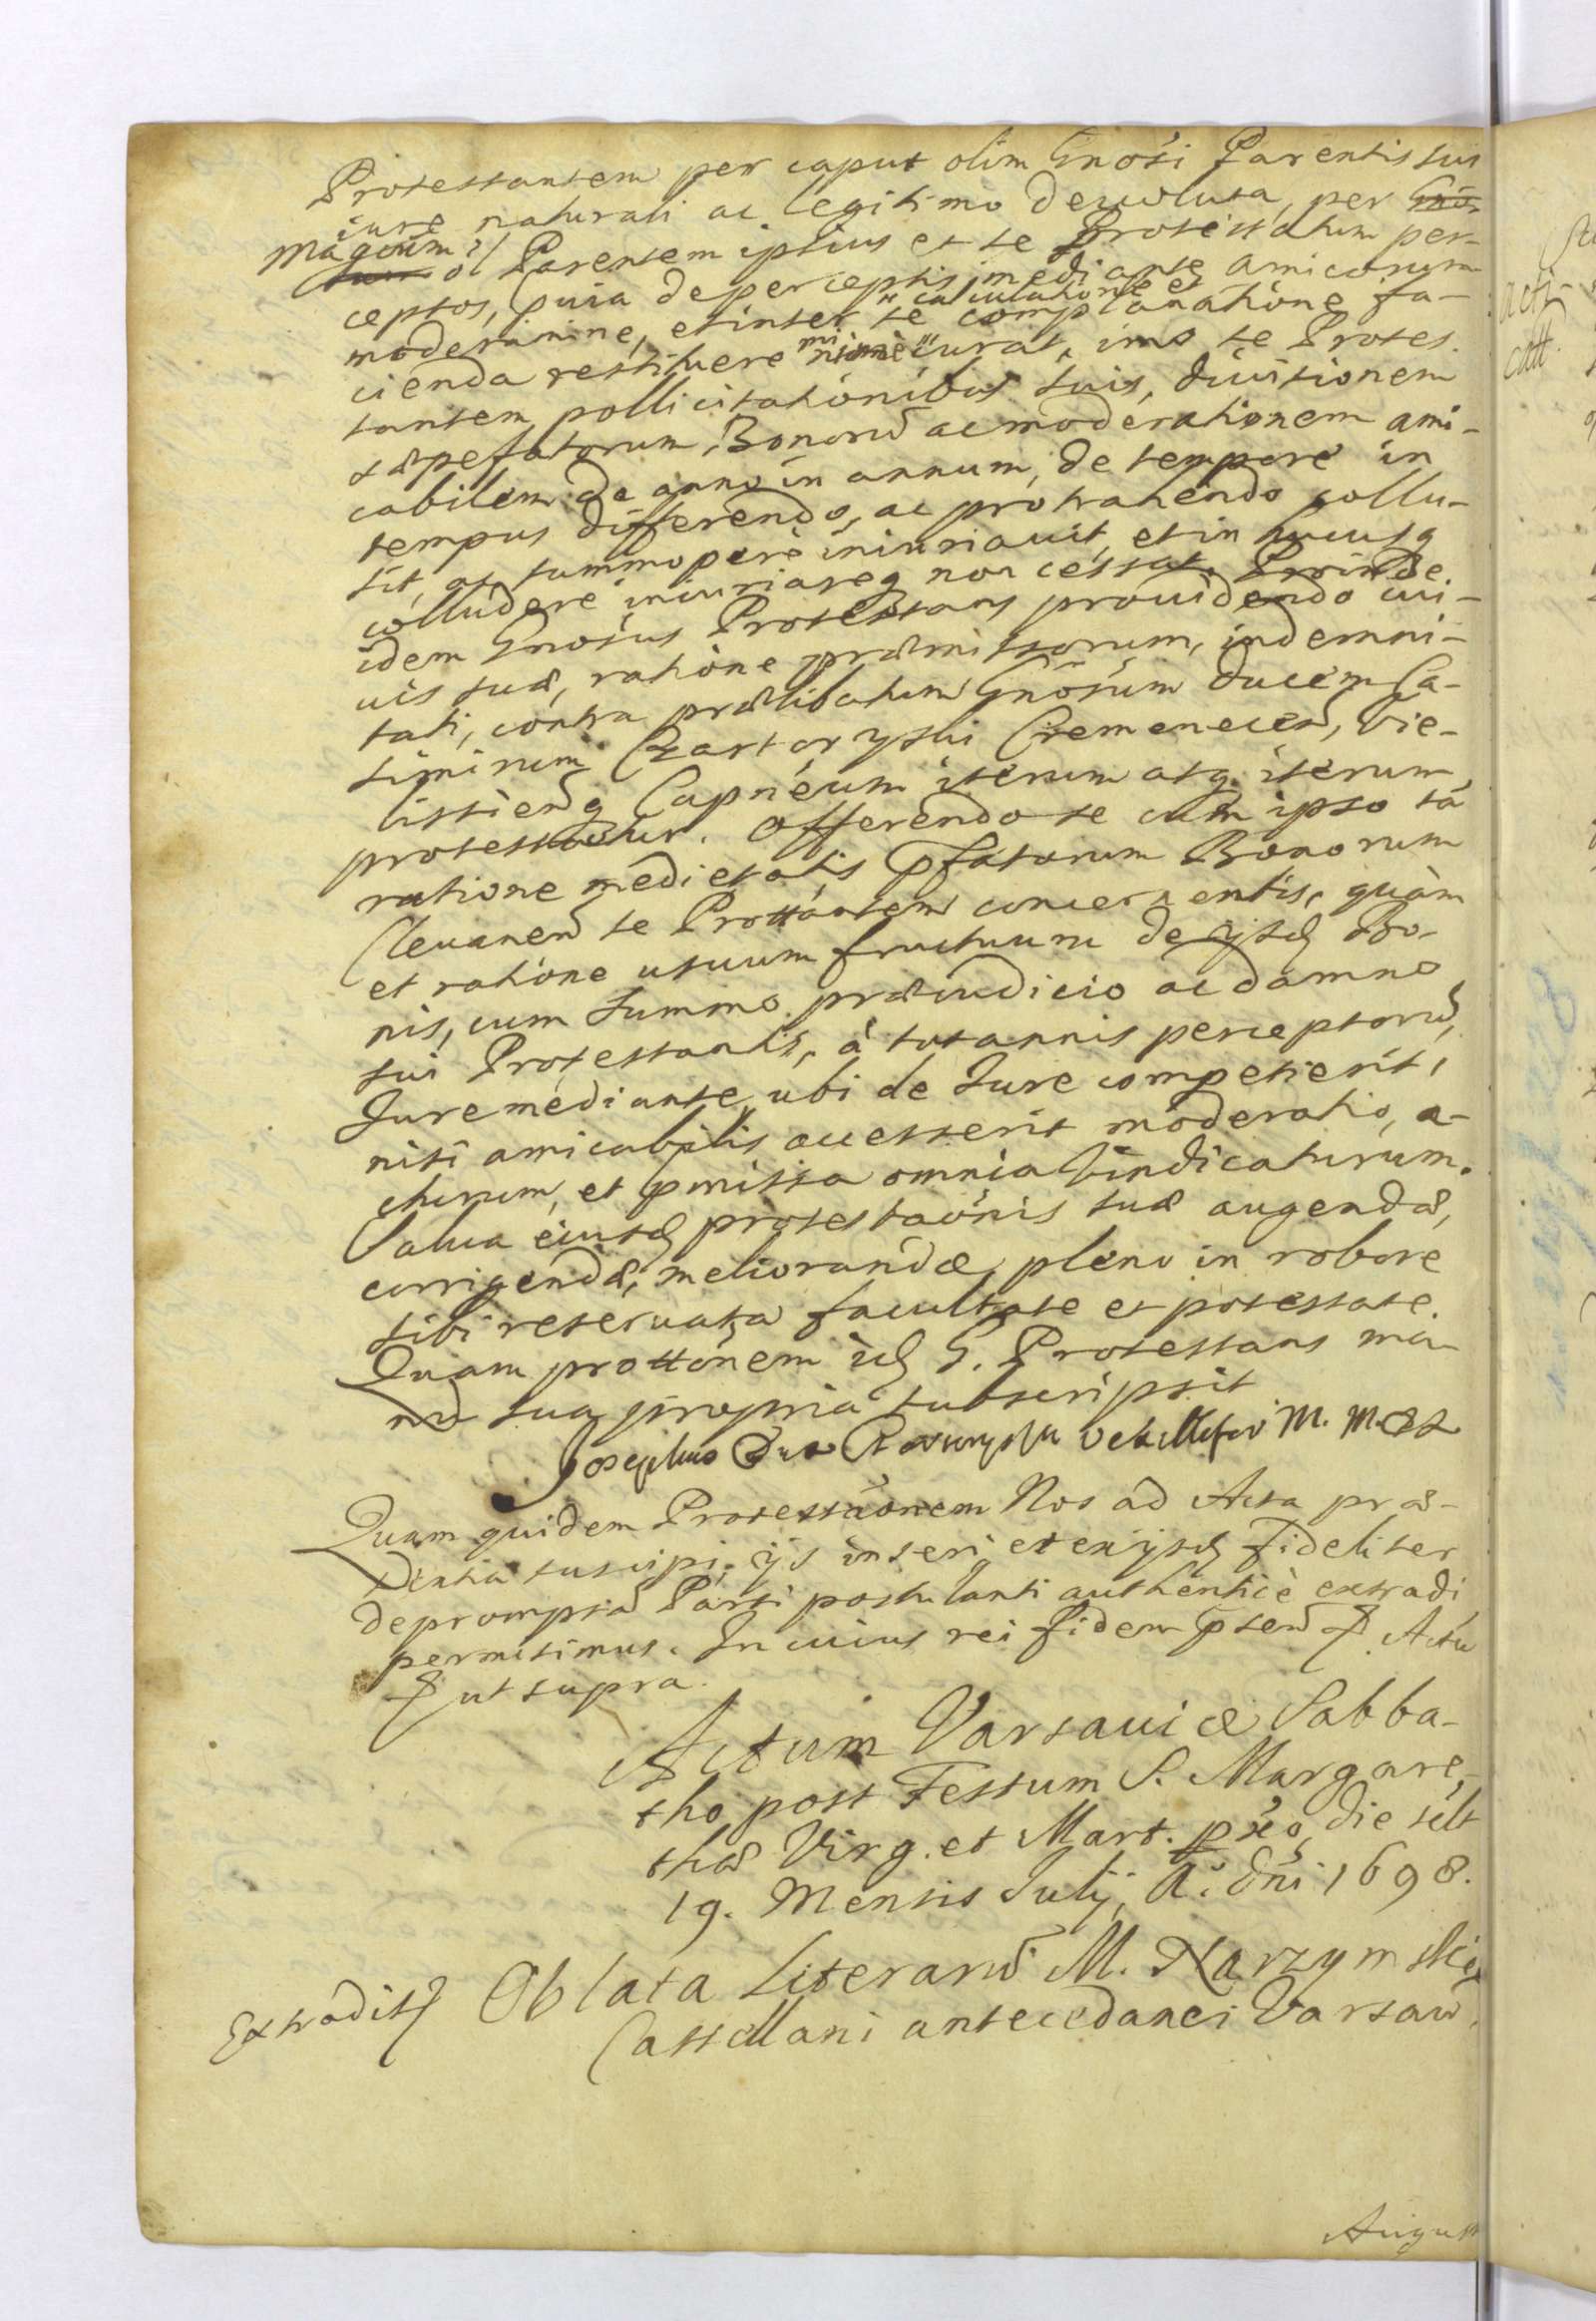 Protestantem per caput olim Gnosi Parentis sui
iure naturali ac legitimo devoluta, per Gno-
Magcum ol Parentem ipsius et se Protestatum per-
ceptos, puta de perceptis, mediante amicorum
moderamine, et inter se calculatione et complanatione fa-
cienda restituere minime curat, imo se Protes-
tantem pollicitationibus suis, divisionem
sæpefatorum Bonorū ac moderationem ami-
cabilem de anno in annum, de tempore in
tempus differendo, ac protrahendo collu-
sit, ac summopere iniuriavit, et in hucusq
colludere iniuriareq non cessat. Proinde
idem Gnosus Protestans providendo cui-
vis suæ, ratione præmissorum, indemni-
tati, contra prælibatum Gnosum Ducem Ca-
simirum Czartoryski Cremenecen, Vie-
lissienq Capneum iterum atq. iterum
protestatur. Offerendo se cum ipso tã
ratione medietatis pfatorum Bonorum
Clevanen se Prottantem concernentis, quàm
et ratione usuum fructuum de ijsd Bo-
nis, cum summo præiudicio ac damno
sui Protestantis, à tot annis perceptorū,
Jure mediante, ubi de Jure competierit,
nisi amicabilis accesserit moderatio, a-
cturum, et pmissa omnia vindicaturum.
Salva eiusd protestaonis suæ augendæ,
corrigendæ, meliorandæ, pleno in robore
sibi reservata facultate et potestate.
Quam prottonem id G. Protestans ma-
nu sua propria subscripsit
Josephus Dux Czartoryski Vexillifer M. M.
Quam quidem Protestaonem Nos ad Acta præ-
sentia suscipi, ijs inseri et ex ijsd fideliter
depromptã Parti postulanti authenticè extradi
permisimus. In cuius rei fidem psen &. Actu
& ut supra.
Actum Varsaviæ Sabba-
tho post Festum S. Margare-
thæ Virg. et Mart. pxo, die scilt
19. Mensis Julij, A: Dni 1698.
Extradit Oblata Literarū M. Narzymski
Castellani antecedanei Varsav.
August